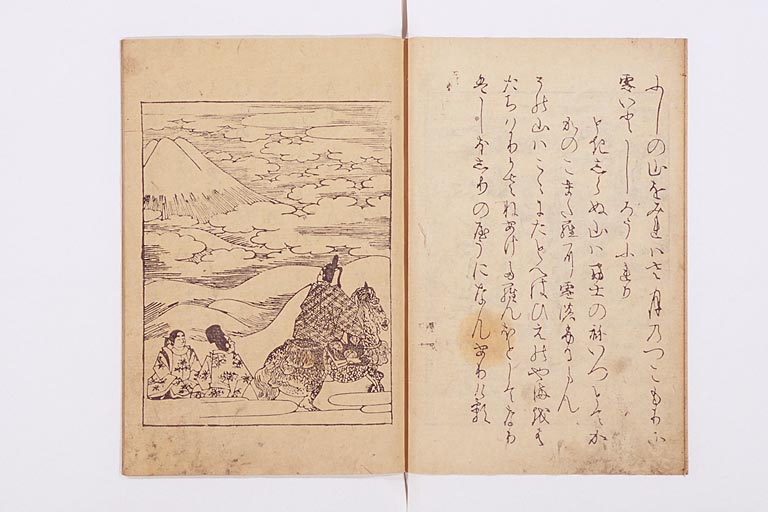 ふしの山をみれはさ月のつこもりに
雪いとしろうふれり
ときしらぬ山は富士の祢いつとてか
かのこまたらに雪のふるらん
その山はこゝにたとへはひえのやまをは
たちはかりかさねあけたらんほとしてなり
はしほしりのやうになんありける